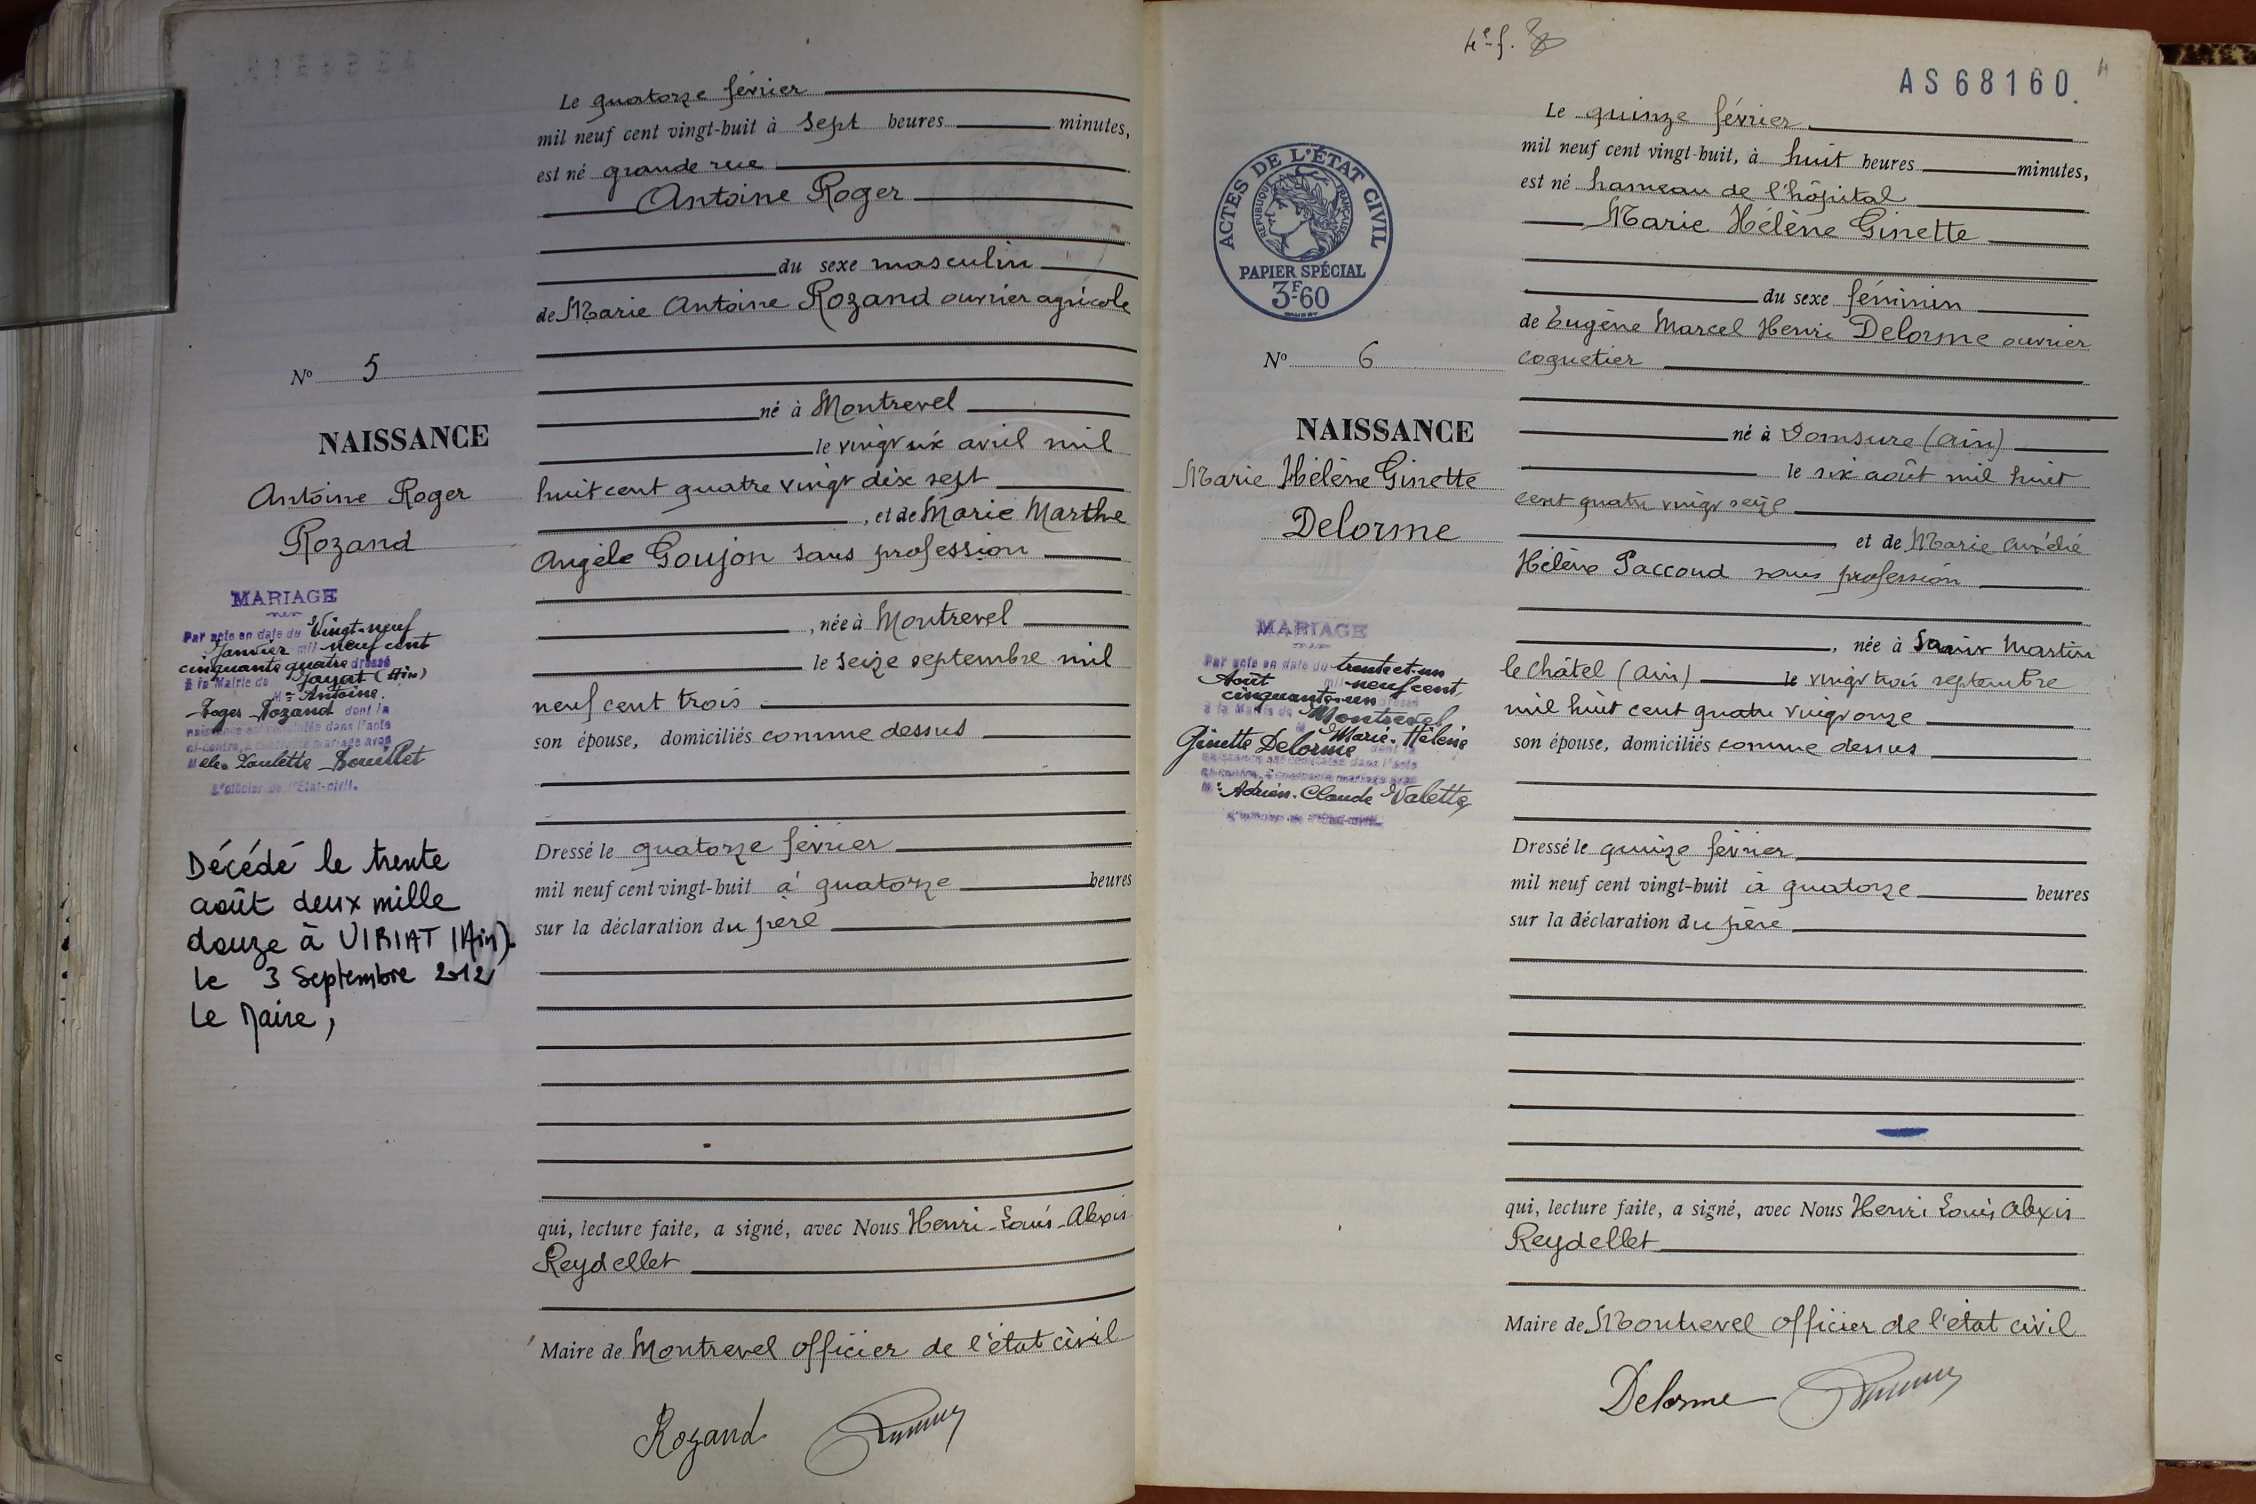 Le quatorze février
mil neuf cent vingt-huit à sept heures minutes,
est né grande rue
Antoine Roger
du sexe masculin
de Marie Antoine Rozand ouvrier agricole
né à Montrevel
le vingt six avril mil
huit cent quatre vingt dix sept
, et de Marie Marthe
Angèle Goujon sans profession
, née à Montrevel
le seize septembre mil
neuf cent trois
son épouse, domiciliés comme dessus
Dressé le quatorze février
mil neuf cent vingt-huit à quatorze heures
sur la déclaration du père
qui, lecture faite, a signé, avec Nous Henri-Louis-Alexis
Reydellet
Maire de Montrevel officier de l'état civil
Rozand
No 5
NAISSANCE
Antoine Roger
Rozand
MARIAGE
Par acte en date du Vingt-neuf
Janvier mil neuf cent
cinquante quatre dressé
à la Mairie de Jayat (Ain)
Mr Antoine
Roger Rozand dont la
naissance est constatée dans l'acte
ci-contre, a contracté mariage avec
Melle Paulette
L'officier de l'Etat-civil.
Décédé le trente
août deux mille
douze à VIRIAT (Ain).
le 3 Septembre 2012
Le Maire,
4e f.
AS68160.
4
ACTES DE L'ÉTAT CIVIL
RÉPUBLIQUE FRANÇAISE
PAPIER SPÉCIAL
3F60
No 6
NAISSANCE
Marie Hélène Ginette
Delorme
MARIAGE
Par acte en date du trente et un
Août mil neuf cent
cinquante-un dressé
à la Mairie de Montrevel
M Marie-Hélène
Ginette Delorme dont la
naissance est constatée dans l'acte
ci-contre, a contracté mariage avec
Mr Adrien-Claude Valette
L'officier de l'Etat-civil.
Le quinze février
mil neuf cent vingt-huit, à huit heures minutes,
est né hameau de l'hôpital
Marie Hélène Ginette
du sexe féminin
de Eugène Marcel Henri Delorme ouvrier
coquetier
né à Domsure (Ain)
le six août mil huit
cent quatre vingt seize
, et de Marie Amélie
Hélène Paccoud sans profession
, née à Saint Martin
le Châtel (Ain) le vingt trois septembre
mil huit cent quatre vingt onze
son épouse, domiciliés comme dessus
Dressé le quinze février
mil neuf cent vingt-huit à quatorze heures
sur la déclaration du père
qui, lecture faite, a signé, avec Nous Henri Louis Alexis
Reydellet
Maire de Montrevel officier de l'état civil
Delorme